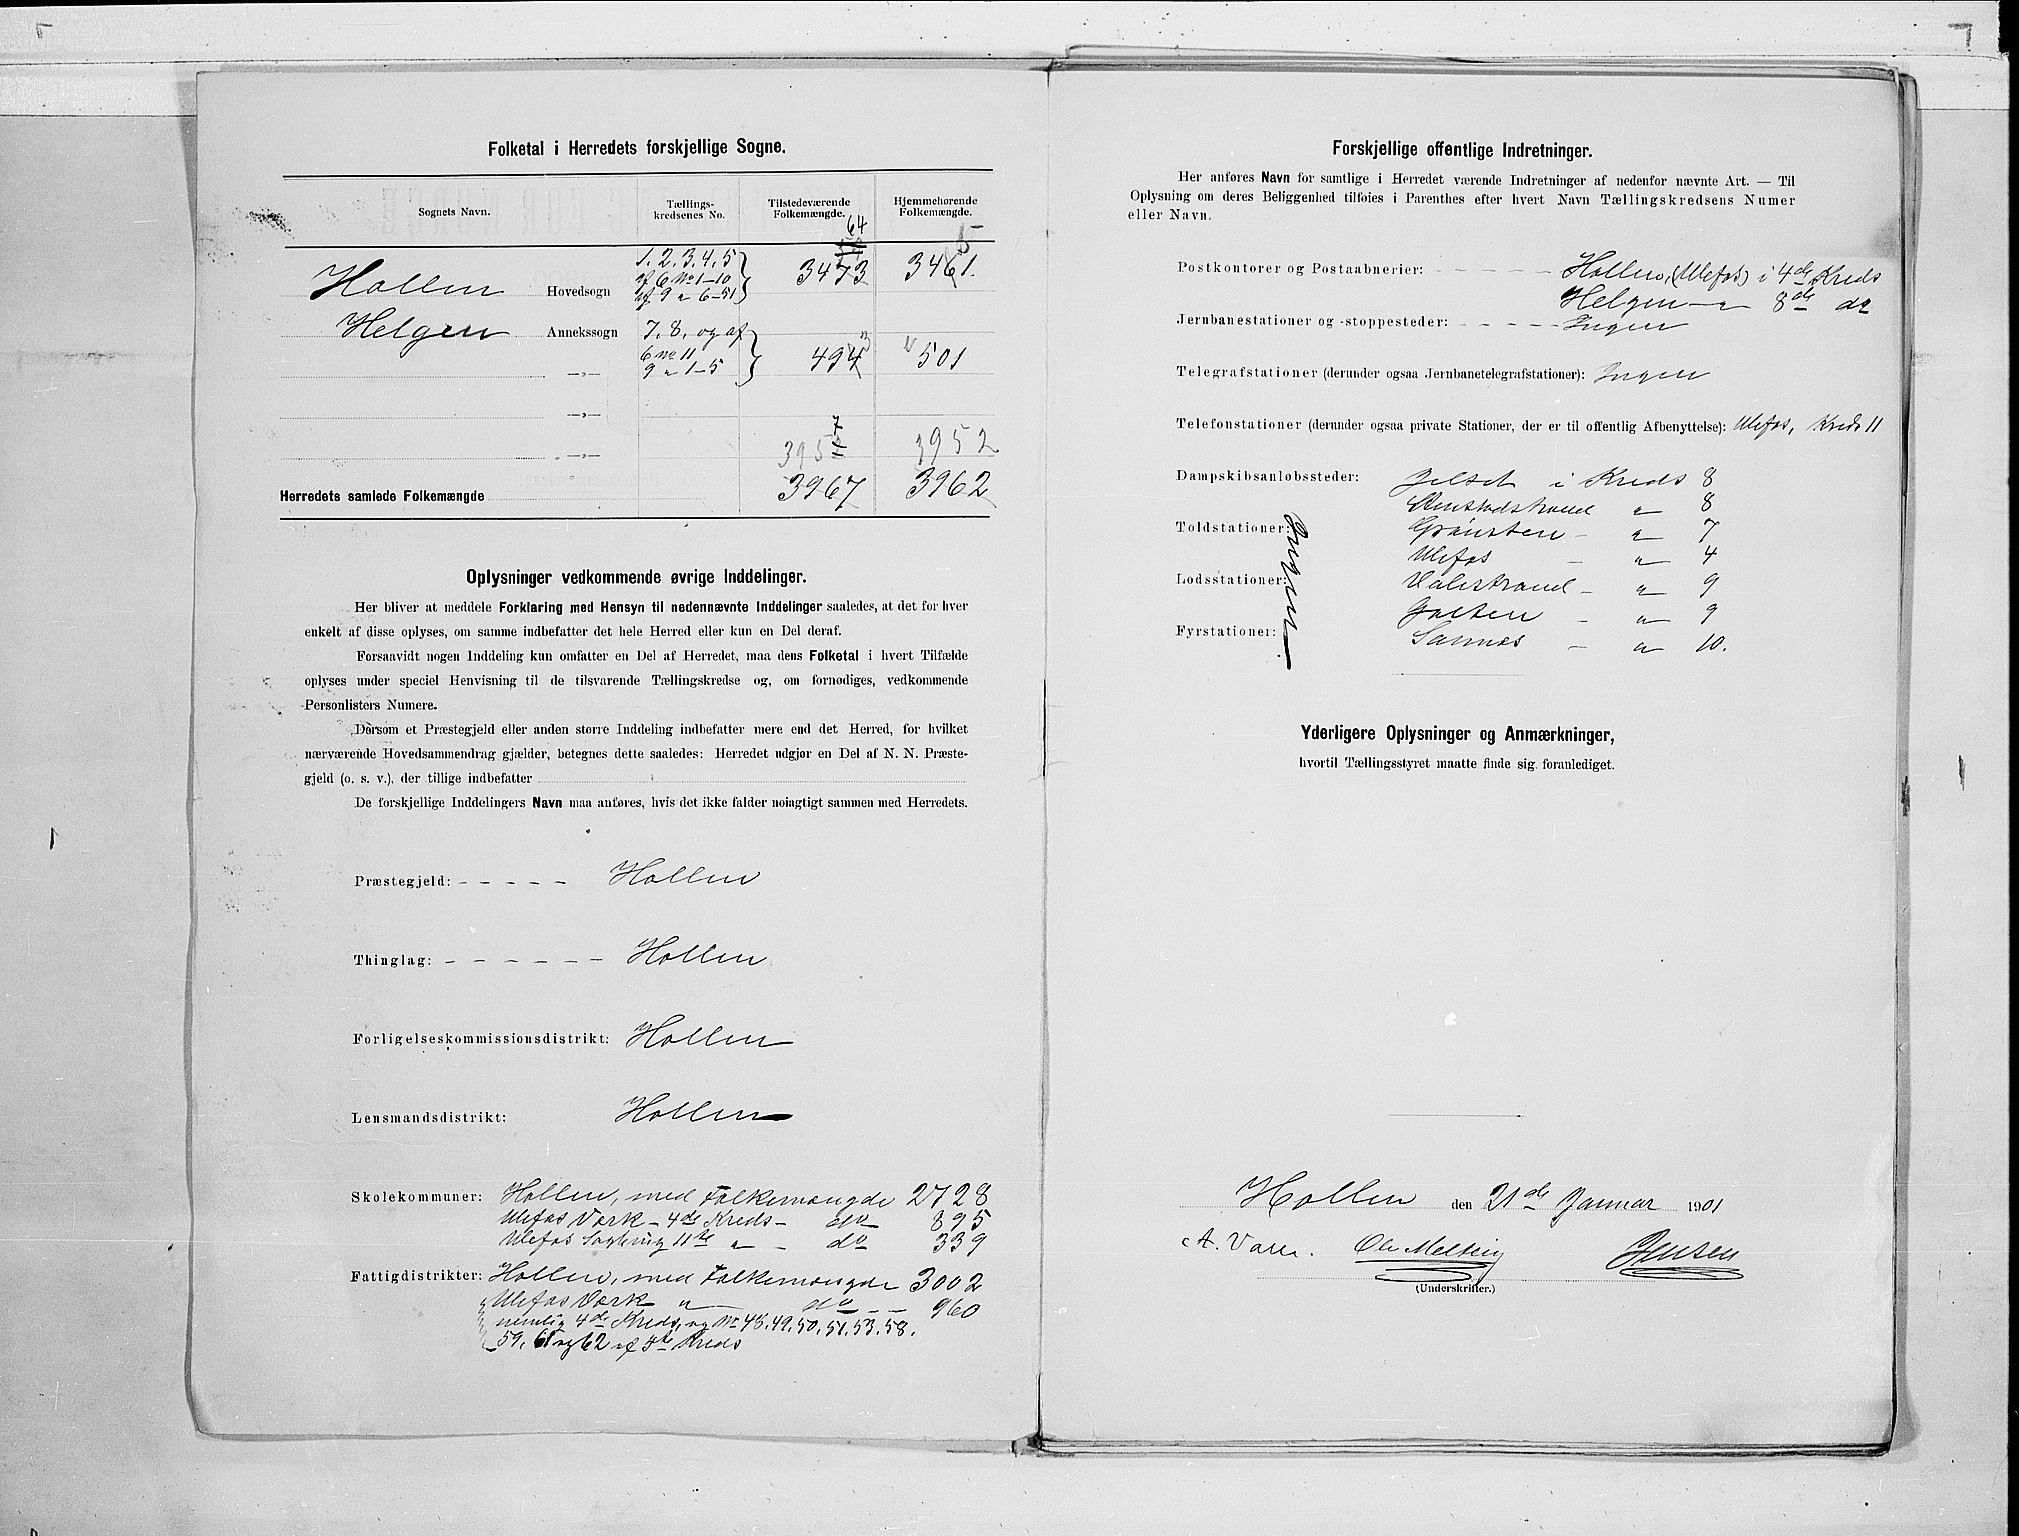 Folketal i Herredets forskjellige Sogne.
Sognets Navn.
Tællings-
kredsenes No.
Tilstedeværende
Folkemængde.
Hjemmehørende
Folkemængde.
64
5
Hollen Hovedsogn
1. 2. 3. 4. 5
af 6 No 1–10
af 9 „ 6–51
3473
3461.
Helgen Annekssogn
7. 8. og af
6 No 11
9 „ 1–5
494
3
501
—„—
—„—
7
3952
3952
—„—
Herredets samlede Folkemængde 3967 3962
Oplysninger vedkommende øvrige Inddelinger.
Her bliver at meddele Forklaring med Hensyn til nedennævnte Inddelinger saaledes, at det for hver
enkelt af disse oplyses, om samme indbefatter det hele Herred eller kun en Del deraf.
Forsaavidt nogen Inddeling kun omfatter en Del af Herredet, maa dens Folketal i hvert Tilfælde
oplyses under speciel Henvisning til de tilsvarende Tællingskredse og, om fornødiges, vedkommende
Personlisters Numere.
Dersom et Præstegjeld eller anden større Inddeling indbefatter mere end det Herred, for hvilket
nærværende Hovedsammendrag gjælder, betegnes dette saaledes: Herredet udgjør en Del af N. N. Præste-
gjeld (o. s. v.), der tillige indbefatter
De forskjellige Inddelingers Navn maa anføres, hvis det ikke falder nøiagtigt sammen med Herredets.
Præstegjeld: – – – – – Hollen
Thinglag: – – – – – – Hollen
Forligelseskommissionsdistrikt: Hollen
Lensmandsdistrikt: Hollen
Skolekommuner: Hollen, med Folkemængde 2728
Ulefos Værk – 4de Kreds – do 895
Ulefos Sagbrug 11te „ – do 339
Fattigdistrikter: Hollen, med Folkemængde 3002
Ulefos Værk „ do – – 960
nemlig 4de Kreds, og No 48. 49. 50. 51. 53. 58.
59. 61 og 62 af 3te Kreds
Forskjellige offentlige Indretninger.
Her anføres Navn for samtlige i Herredet værende Indretninger af nedenfor nævnte Art. — Til
Oplysning om deres Beliggenhed tilføies i Parenthes efter hvert Navn Tællingskredsens Numer
eller Navn.
Postkontorer og Postaabnerier: – – – – – Hollen, (Ulefos) i 4de Kreds
Helgen – „ 8de do
Jernbanestationer og -stoppesteder: – – – – – Ingen
Telegrafstationer (derunder ogsaa Jernbanetelegrafstationer): Ingen
Telefonstationer (derunder ogsaa private Stationer, der er til offentlig Afbenyttelse): Ulefos, Kreds 11
Dampskibsanløbssteder: Jelset i Kreds 8
Stenstadstrand „ 8
Toldstationer: Grønsten – „ 7
Ulefos – „ 4
Lodsstationer: Valerstrand – „ 9
Ingen
„ 9
Fyrstationer: Sannes – „ 10.
Yderligere Oplysninger og Anmærkninger,
hvortil Tællingsstyret maatte finde sig foranlediget.
Hollen den 21de Januar 1901
A. Vaer. Ole Jensen
(Underskrifter.)